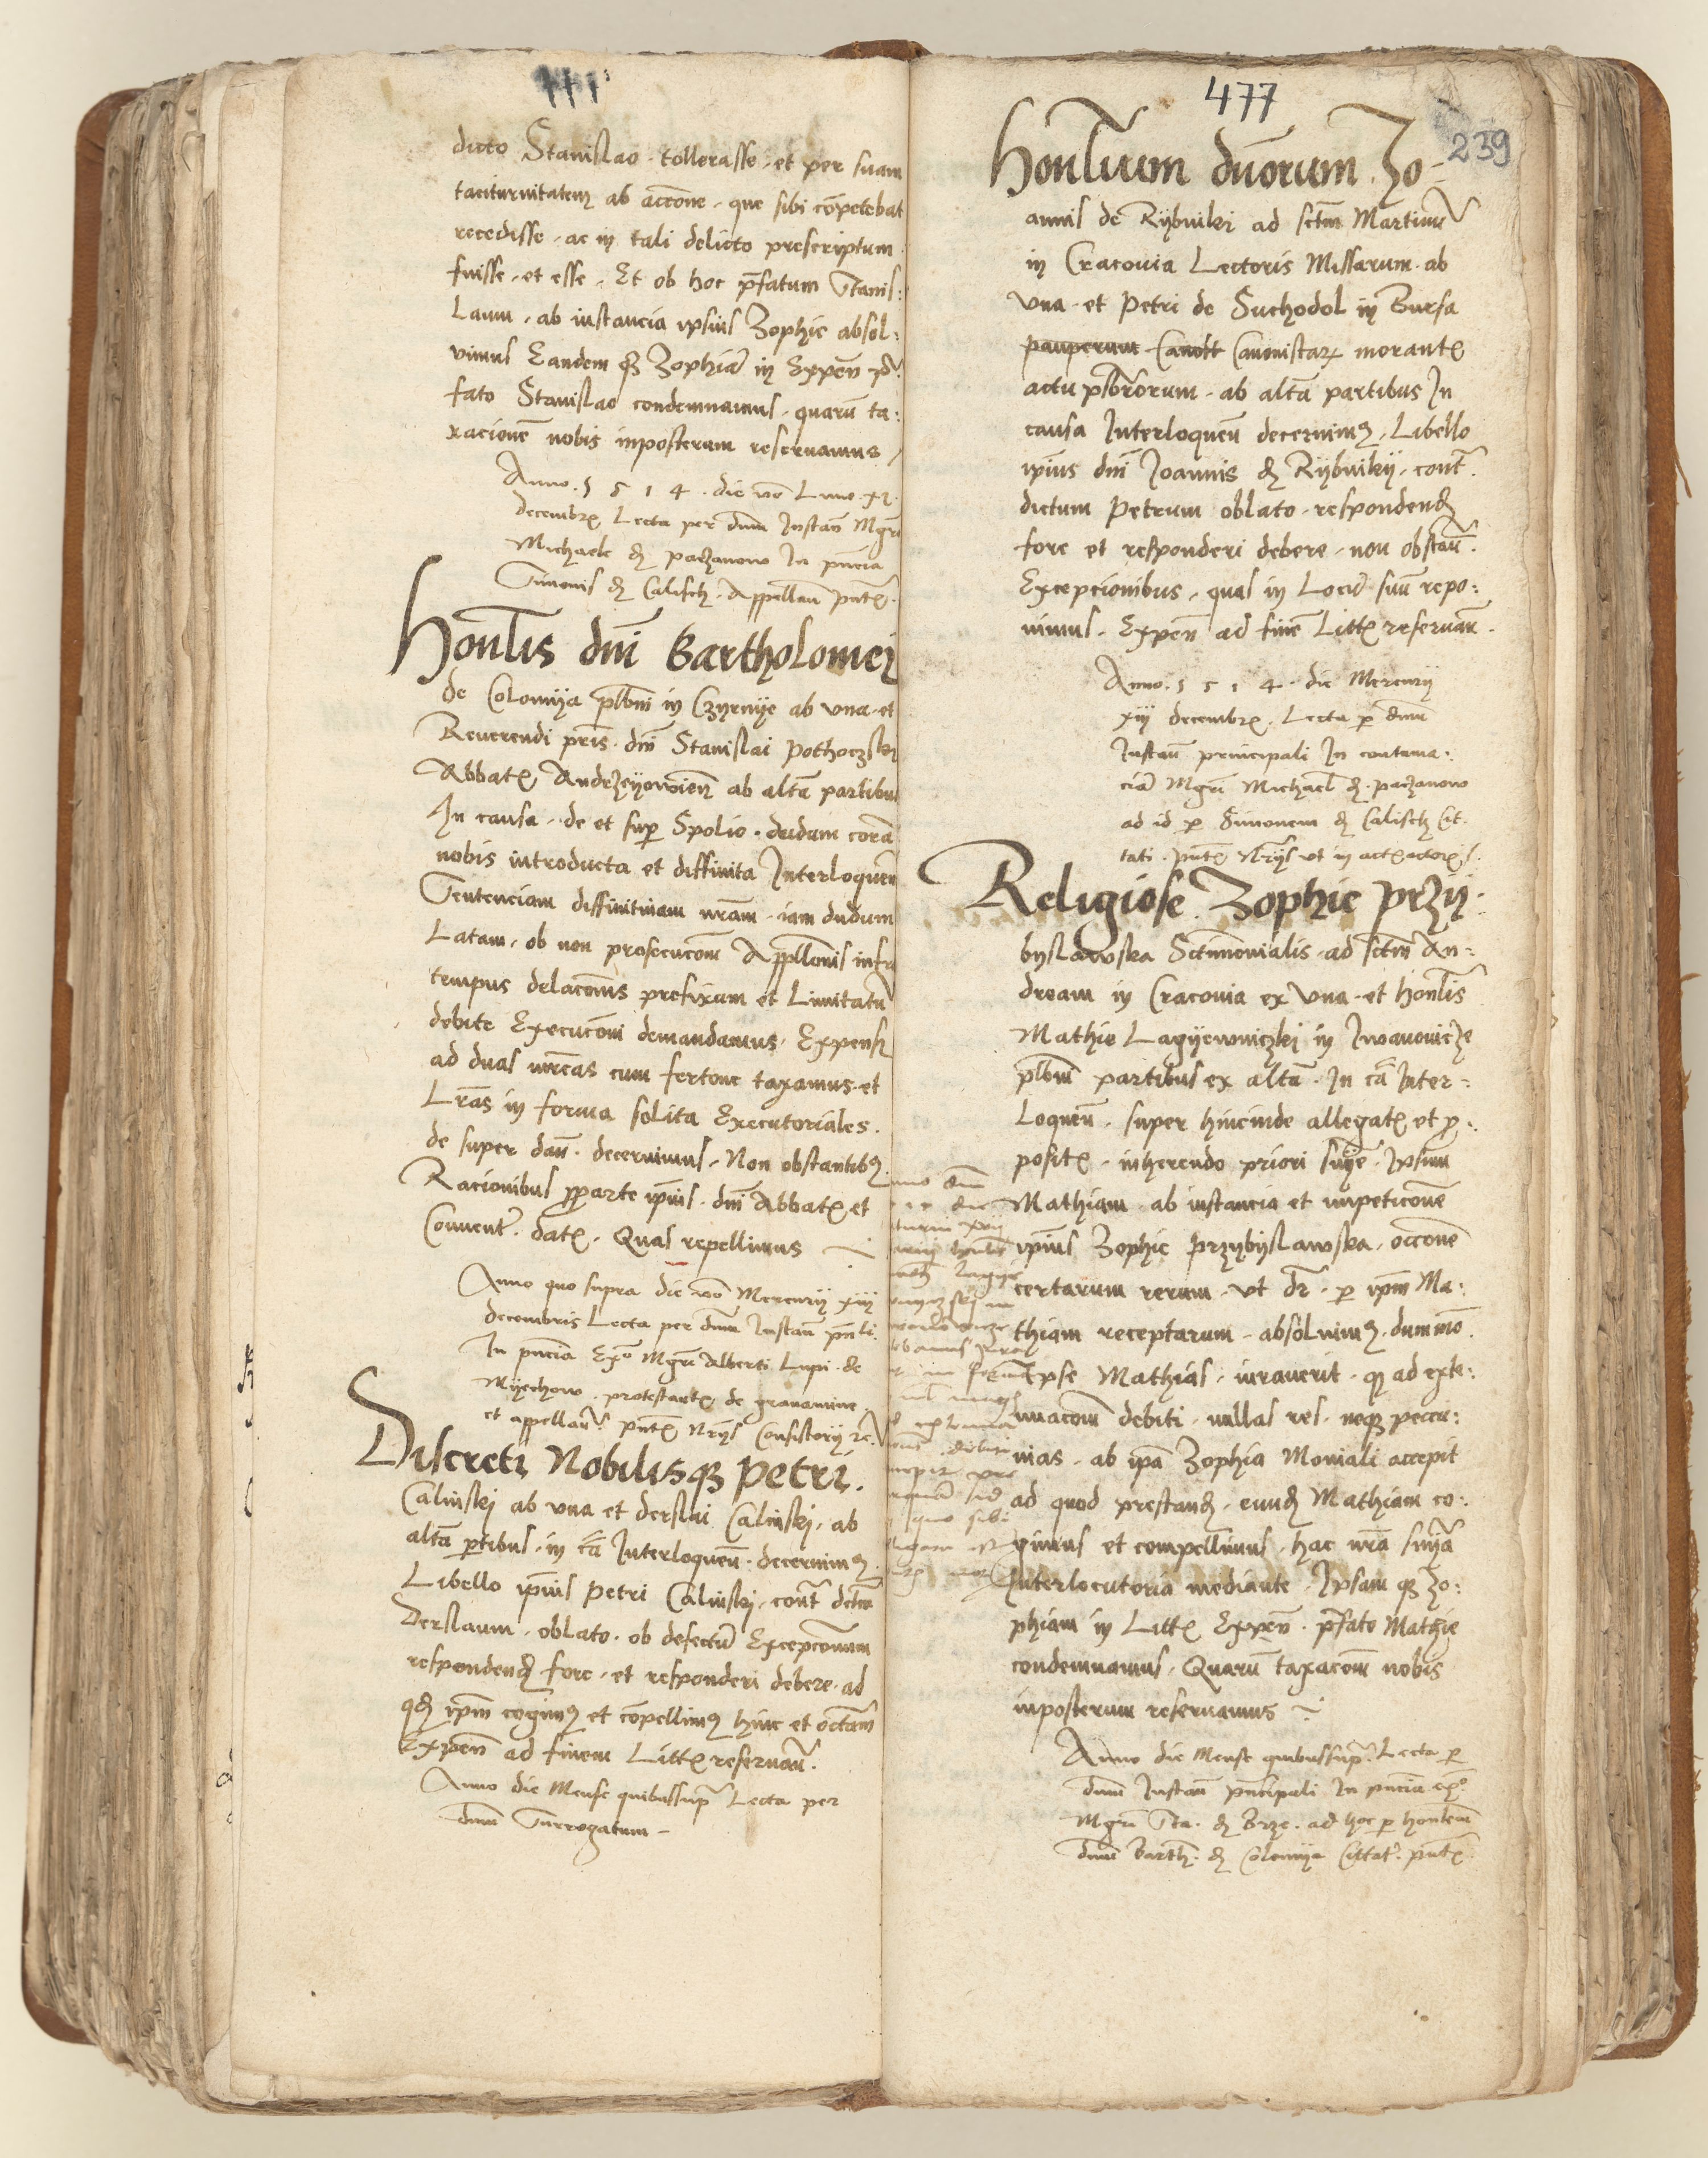 dicto Stanislao tollerasse et per suam
taciturnitatem ab accōne que sibi cōpetebat
recedisse ac in tali delicto prescriptum
fuisse et esse. Et ob hoc p̄fatum Stanis:
Laum, ab instancia ipsius Zophie absol:
vimus Eandem q3 Zophiā in Expen̄ p̄:
fato Stanislao condemnamus, quarū ta:
xacionē nobis inposterum reservamus
Anno 1514 die vō Lune xi
decembr̄ Lecta per dnm̄ Instan̄ Mgrī
Michaele de paczanow In pn̄cia
Simonis de Calisch Appellan̄ pn̄t̄
Honl̄is dnī Bartholomei
de Colomija plb̄ni in Czyrnije ab una et
Reverendi pr̄is dnī Stanislai Pothoczski
Abbat̄ Andrzeijowien̄ ab altā partibus
In causa de et sup̄ Spolio dudum corā
nobis introducta et diffinita Interloquen̄
Sentenciam diffinitivam nr̄am iam dudum
Latam, ob non prosecucōm Appellōnis infra
tempus delacōnis prefixum et Limitatū
debite Execucōni demandamus Expens
ad duas mr̄cas cum fertone taxamus et
Lr̄as in forma solita Executoriales
de super dan̄ decernimus, Non obstantib9
Racionibus p̄parte ip̄ius dnī Abbat̄ et
Convent̄ dat̄. Quas repellimus
Anno quo supra die vō Mercurij xiij
decembris Lecta per dnm̄ Instan̄ pn̄li
In pn̄cia Mgrī Alberti Lupi de
Mijechow protestant̄ de gravamine
et appellan̄ pn̄t̄ Nr̄ijs Consistorij
Discreti Nobilisq3 Petri
Calinskj ab una et Derslai Calinskj, ab
altā p̄tibus in cā Interloquen̄ decernim9
Libello ip̄ius Petri Calinskj, cont̄ dictū
Derslaum oblato ob defectū Excepcōnum
respondend fore et responderi debere ad
qd ip̄m cogim9 et cōpellim9 hinc et octām
Expen̄ ad finem Litt̄ reservan̄
Anno die Mense quibussup̄ Lecta per
dnm̄ Surrogatum
477
239
Honl̄ium duorum Jo=
annis de Rijbnikj ad sctm̄ Martinū
in Cracovia Lectoris Missarum ab
una et Petri de Suchodol in Bursa
pauperum Canoīst Canonistar̄ morant̄
actu psbr̄orum ab altā partibus In
causa Interloquen̄ decernim9, Libello
ip̄ius dnī Joannis de Rijbnikij, cont̄
dictum Petrum oblato respondend
fore et responderi debere, non obstan̄
Excepcionibus, quas in Locū suū repo:
nimus. Expen̄ ad finē Litt̄ reservan̄
Anno 1514 die Mercurij
xiij decembr̄. Lecta p̄ dnm̄
Instan̄ principali In contuma:
ciā Mgrī Michael de paczanow
ad id p̄ Simonem de Calisch Cit
tati pn̄t̄ Nr̄ijs ut in act
Religiose Zophie Przij
byslawska Sctīmonialis ad sctm̄ An:
dream in Cracovia ex una et honl̄is
Mathie Lagijewniczkj in Iwanovicze
plb̄ni partibus ex altā In cā Inter:
Loquen̄, super hincinde allegat̄ et p̄:
posit̄ inherendo priori snīje Ipsum
Mathiam ab instancia et impeticōne
ip̄ius Zophie Przybijslawska, occōne
certarum rerum ut dr̄ p̄ ip̄m Ma:
thiam receptarum absolvim9 dummō
Ipse Mathias iuraverit q3 ad exte:
nuacōm debiti nullas res neq3 peccu:
nias ab ip̄a Zophia Moniali accepit
ad quod prestand eund Mathiam co:
gimus et compellimus hac nr̄a snīja
Interlocutoria mediante Ipsam q3 Zo:
phiam in Litt̄ Expen̄ p̄fato Mathie
condemnamus, Quarū taxacōm nobis
inposterum reservamus
Anno die Mense quibussup̄ Lecta p̄
dnm̄ Instan̄ principali In pn̄cia
Mgrī Sta. de Brze. ad hoc p̄ honlēm
dnm̄ Barth de Colomija Cittat̄ pn̄t̄